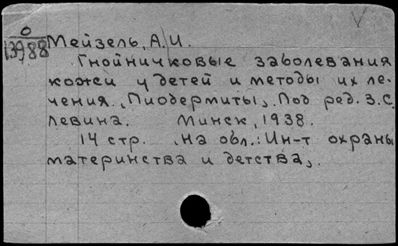 О
13988
Мейзель, А.И.
Гнойничковые заболевания
кожи у детей и методы их ле-
чения. „Пиодермиты„. Под ред. З.С.
Левина. Минск, 1938.
14 стр. „На обл.: Ин-т охраны
материнства и детства„.